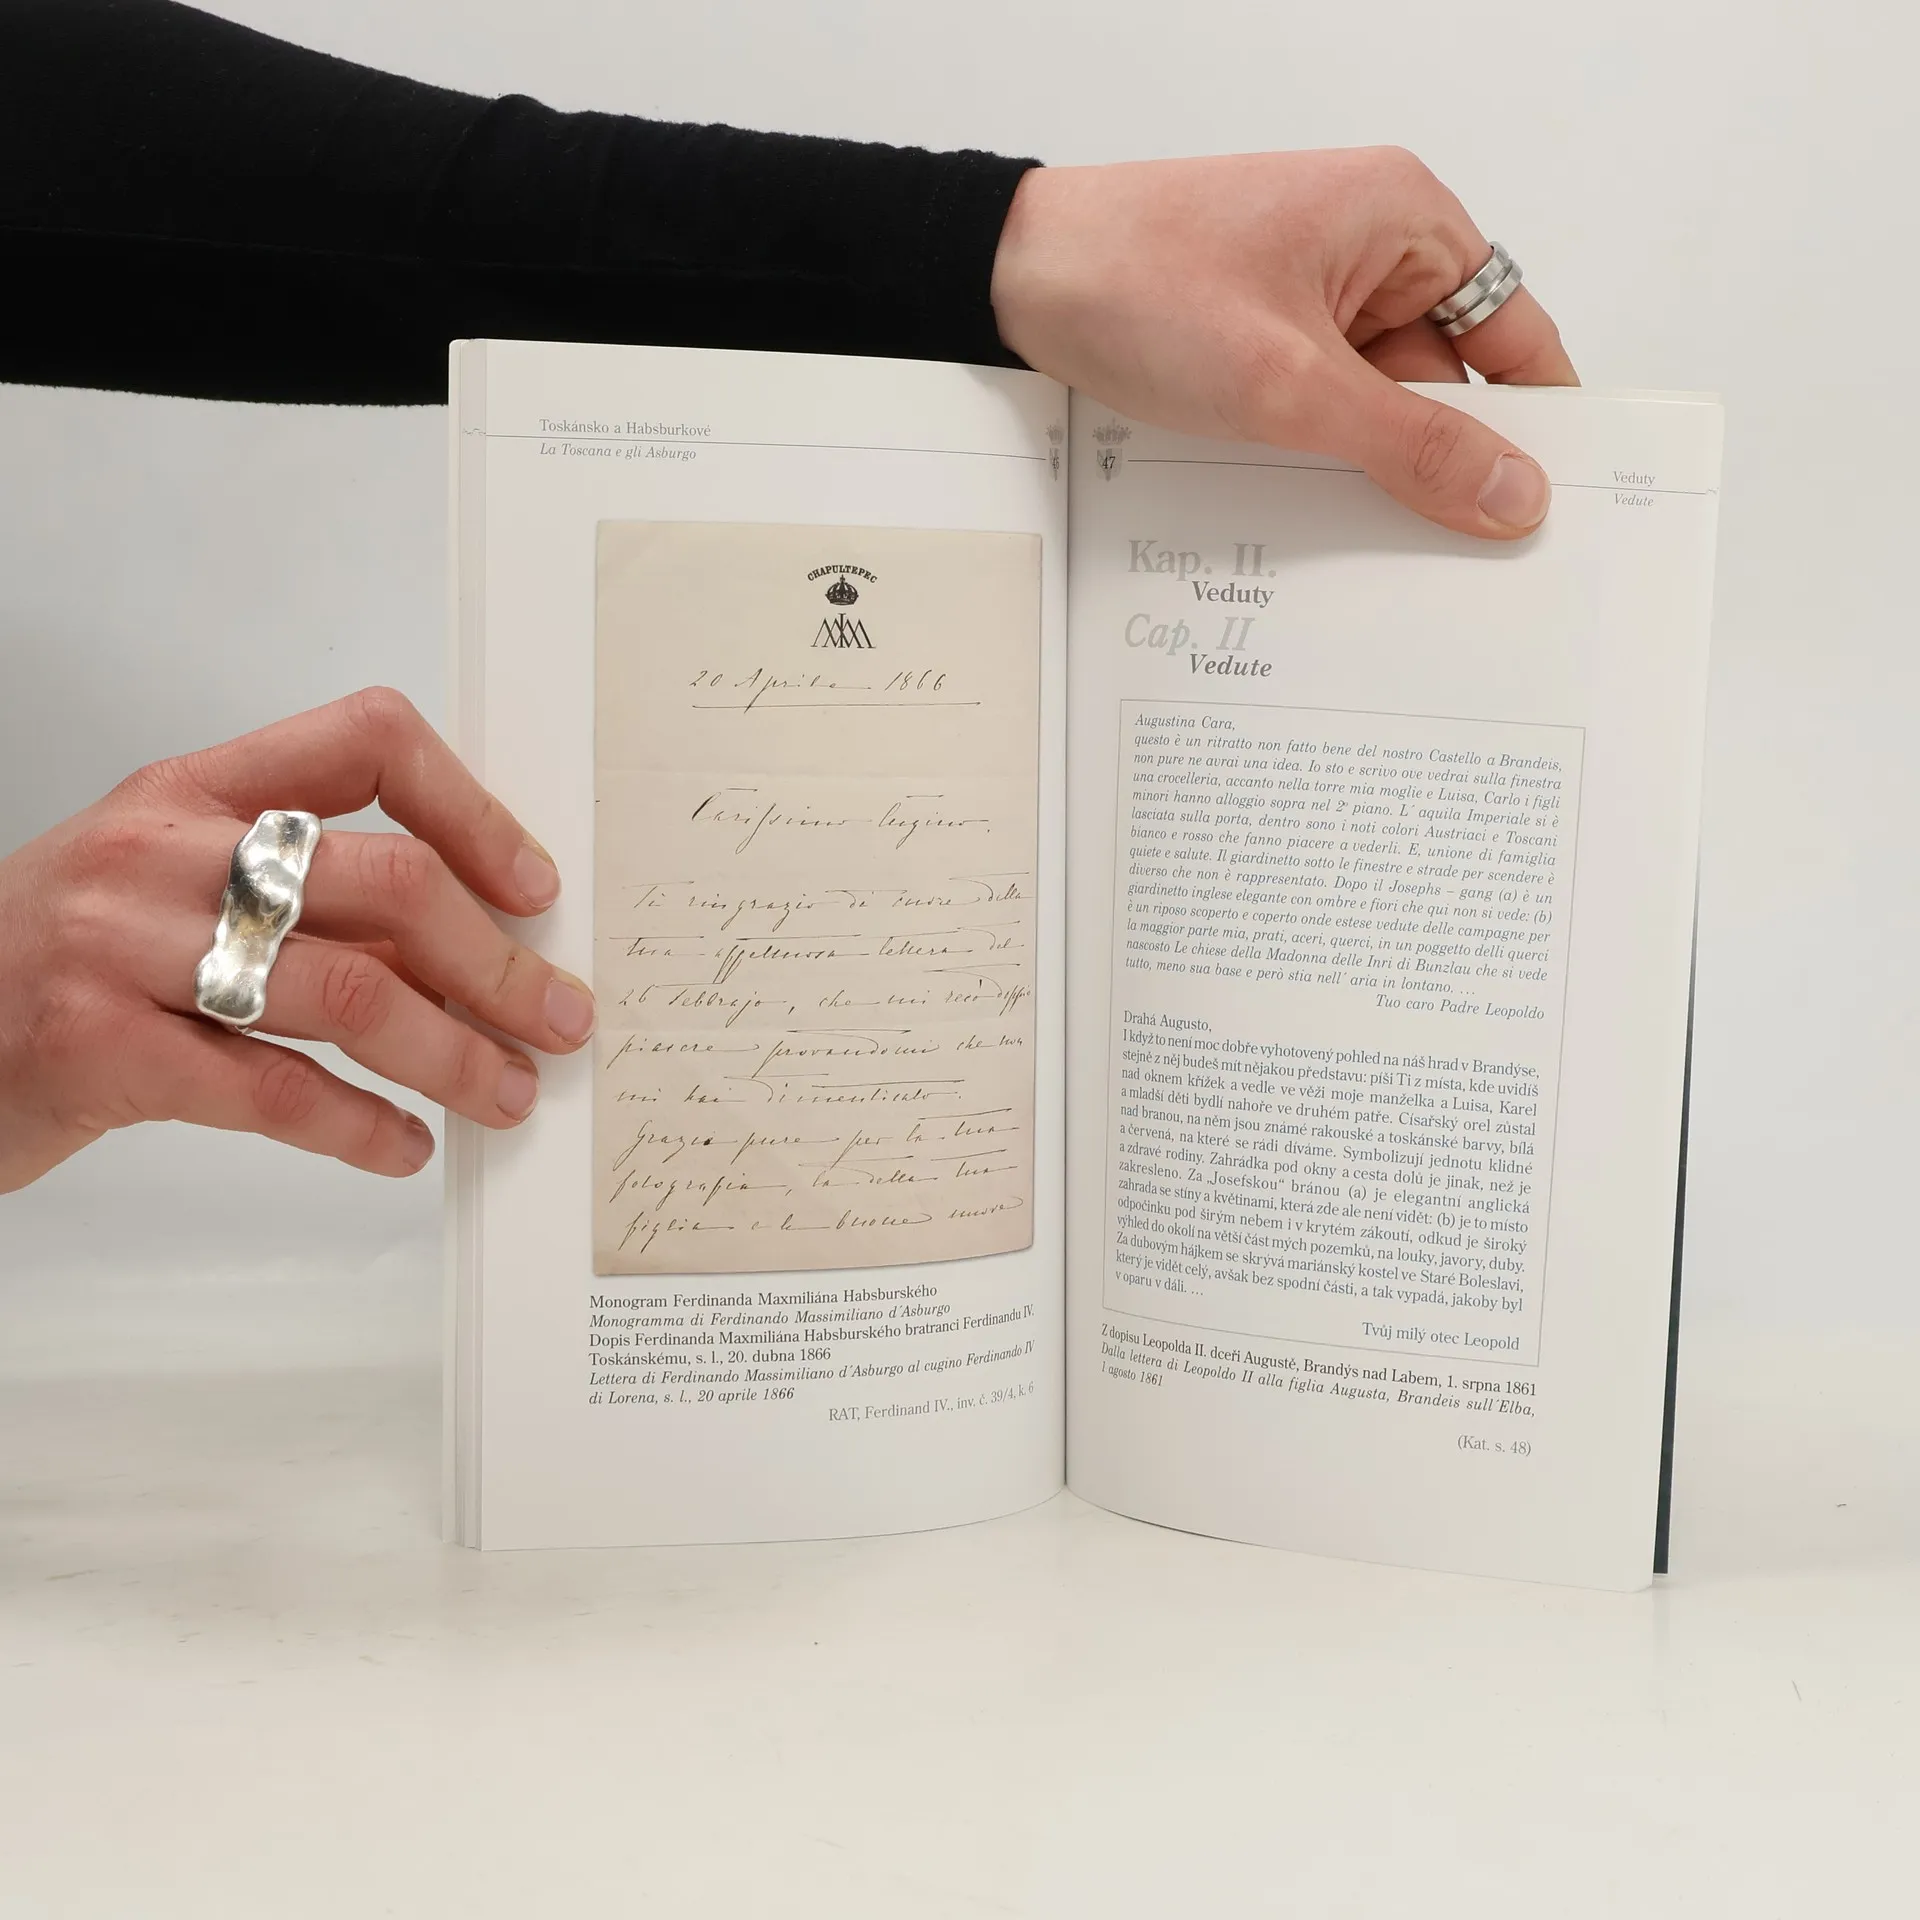 Toskánsko a Habsburkové
La Toscana e gli Asburgo
CHAPULTEPEC
20 Aprile 1866
Carissimo Cugino,
Ti ringrazio di cuore della
tua affettuosa lettera del
26 Febbrajo, che mi recò doppio
piacere provandomi che non
mi hai dimenticato.
Grazie pure per la tua
fotografia, la della tua
figlia e le buone nuove
Monogram Ferdinanda Maxmiliána Habsburského
Monogramma di Ferdinando Massimiliano d´Asburgo
Dopis Ferdinanda Maxmiliána Habsburského bratranci Ferdinandu IV.
Toskánskému, s. l., 20. dubna 1866
Lettera di Ferdinando Massimiliano d´Asburgo al cugino Ferdinando IV
di Lorena, s. l., 20 aprile 1866
RAT, Ferdinand IV., inv. č. 39/4, k. 6
47
Veduty
Vedute
Kap. II.
Veduty
Cap. II
Vedute
Augustina Cara,
questo è un ritratto non fatto bene del nostro Castello a Brandeis,
non pure ne avrai una idea. Io sto e scrivo ove vedrai sulla finestra
una crocelleria, accanto nella torre mia moglie e Luisa, Carlo i figli
minori hanno alloggio sopra nel 2º piano. L´ aquila Imperiale si è
lasciata sulla porta, dentro sono i noti colori Austriaci e Toscani
bianco e rosso che fanno piacere a vederli. E, unione di famiglia
quiete e salute. Il giardinetto sotto le finestre e strade per scendere è
diverso che non è rappresentato. Dopo il Josephs – gang (a) è un
giardinetto inglese elegante con ombre e fiori che qui non si vede: (b)
è un riposo scoperto e coperto onde estese vedute delle campagne per
la maggior parte mia, prati, aceri, querci, in un poggetto delli querci
nascosto Le chiese della Madonna delle Inri di Bunzlau che si vede
tutto, meno sua base e però stia nell´ aria in lontano. ...
Tuo caro Padre Leopoldo
Drahá Augusto,
I když to není moc dobře vyhotovený pohled na náš hrad v Brandýse,
stejně z něj budeš mít nějakou představu: píši Ti z místa, kde uvidíš
nad oknem křížek a vedle ve věži moje manželka a Luisa, Karel
a mladší děti bydlí nahoře ve druhém patře. Císařský orel zůstal
nad branou, na něm jsou známé rakouské a toskánské barvy, bílá
a červená, na které se rádi díváme. Symbolizují jednotu klidné
a zdravé rodiny. Zahrádka pod okny a cesta dolů je jinak, než je
zakresleno. Za „Josefskou“ bránou (a) je elegantní anglická
zahrada se stíny a květinami, která zde ale není vidět: (b) je to místo
odpočinku pod širým nebem i v krytém zákoutí, odkud je široký
výhled do okolí na větší část mých pozemků, na louky, javory, duby.
Za dubovým hájkem se skrývá mariánský kostel ve Staré Boleslavi,
který je vidět celý, avšak bez spodní části, a tak vypadá, jakoby byl
v oparu v dáli. ...
Tvůj milý otec Leopold
Z dopisu Leopolda II. dceři Augustě, Brandýs nad Labem, 1. srpna 1861
Dalla lettera di Leopoldo II alla figlia Augusta, Brandeis sull´Elba,
1 agosto 1861
(Kat. s. 48)